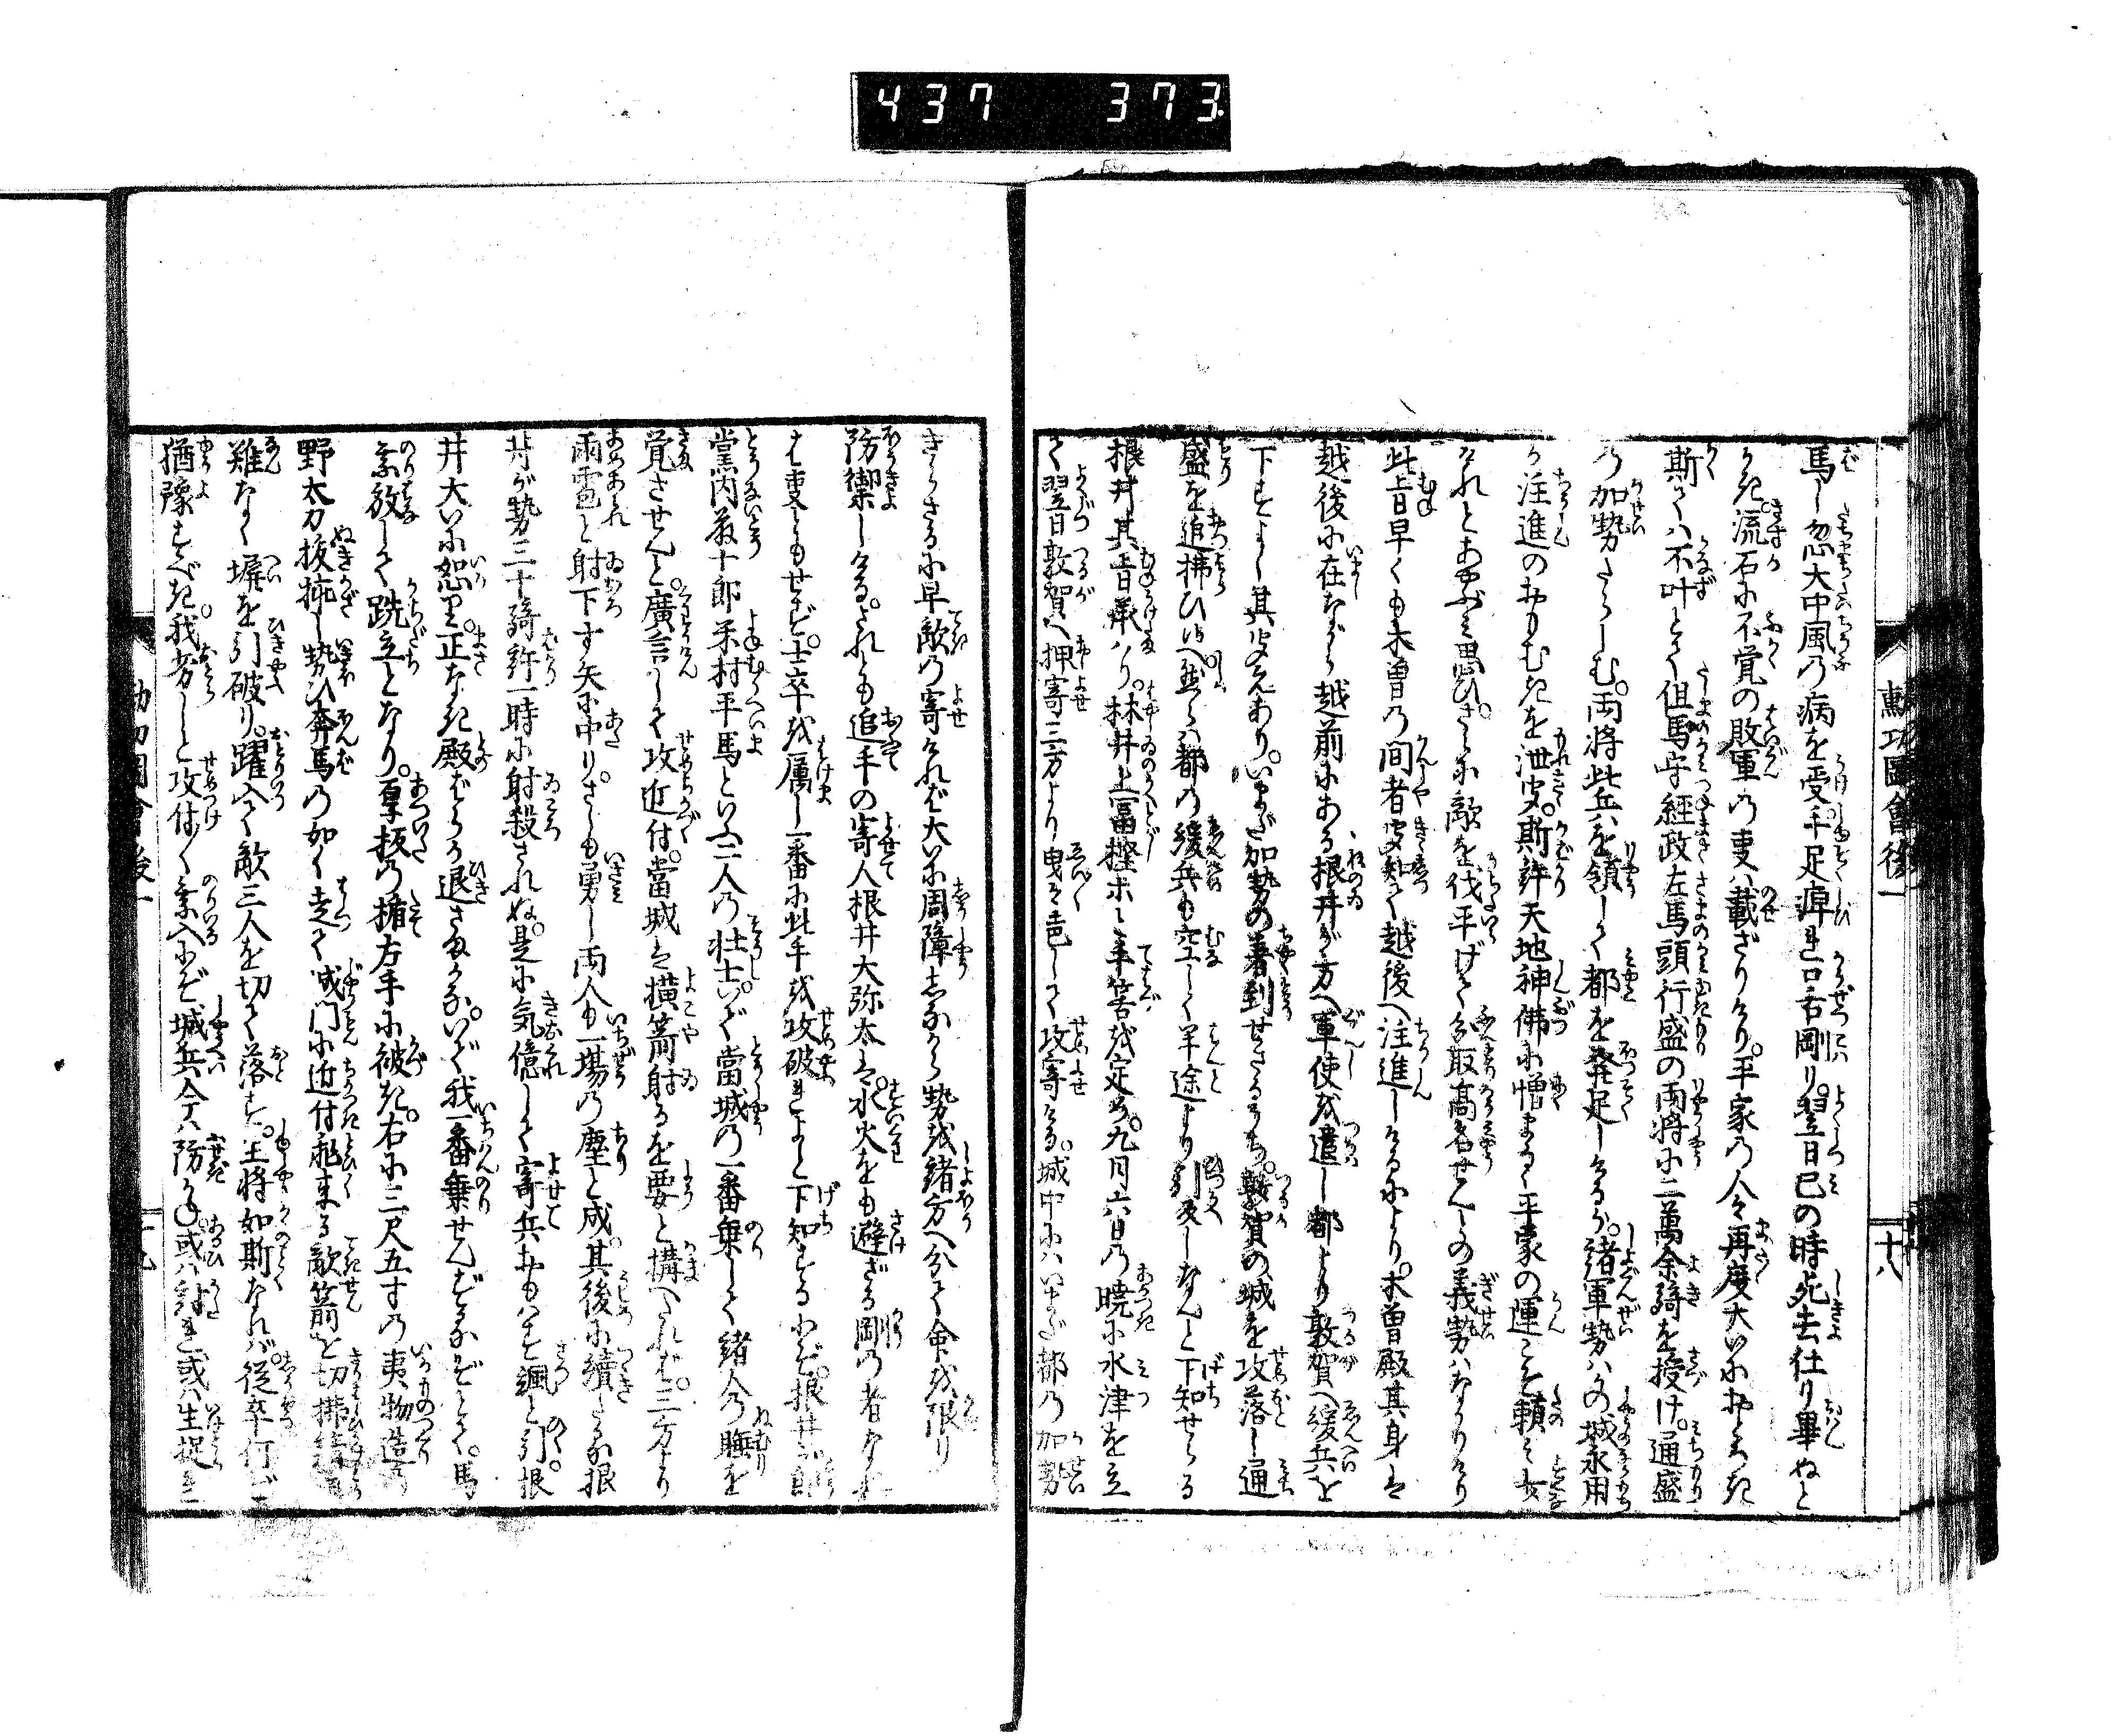 437 373
勲功圖會後一
十八
馬し忽大中風の病を受手足痺れ口舌剛り。翌日巳の時死去仕り畢ぬと
かき。流石に不覚の敗軍の事ハ載ざりけり。平家の人々再度大いにおどろき
斯てハ不叶とて但馬守経政左馬頭行盛の両将に二萬余騎を授け。通盛
の加勢たらしむ。両将此兵を領して都を発足しけるが。諸軍勢ハかの城永用
が注進のおもむきを泄聞。斯許天地神佛に憎まるゝ平家の運こそ頼もし
けれとあやぶミ思ひ。さらに敵を伐平げて分取高名せんとの義勢ハなかりけり
此旨早くも木曽の間者聞知て越後へ注進しけるにより。木曽殿其身は
越後に在ながら越前にある根井が方へ軍使を遣し都より敦賀へ援兵を
下すよし其聞えあり。いまだ加勢の着到せざるうち。敦賀の城を攻落し通
盛を追拂ひ候へ然らバ都の援兵も空しく半途より引返しなんと下知せらる
根井其旨承ハり。林井上冨樫ホと手筈を定め。九月六日の暁に水津を立
て翌日敦賀へ押寄三方より曳々声して攻寄ける。城中にハいまだ都の加勢
きたらざるに早敵の寄けれバ大いに周障しながら勢を諸方へ分て命を限り
防禦しける。されども追手の寄人根井大弥太は。水火をも避ざる剛の者なれ
ば事ともせず。士卒を厲し一番に此手を攻破れよと下知するにぞ。根井が郎
黨内藤十郎米村平馬といふ二人の壮士。いで當城の一番乗して諸人の睡を
覚させんと。廣言して攻近付。當城は横箭射るを要と構へたれバ。三方より
雨雹と射下す矢に中り。さしも勇し両人も一場の塵と成。其後に續たる根
井が勢三十騎許一時に射殺されぬ。是に気億して寄兵おもハず颯と引。根
井大いに恕り。正なき殿ばらの退さまかな。いで我一番乗せんずるぞとて。馬
乗放して跣立となり。厚板の楯左手に被き。右に三尺五寸の夷物造の
野太刀抜挿し勢ひ奔馬の如く走て城門に近付飛来る敵箭を切拂
難なく塀を引破り。躍入て敵三人を切て落す。主将如斯なれバ。従卒何ど
猶豫すべき。我劣らじと攻付々乗入にぞ。城兵今ハ防かね。或ハ討れ或ハ生捉れ